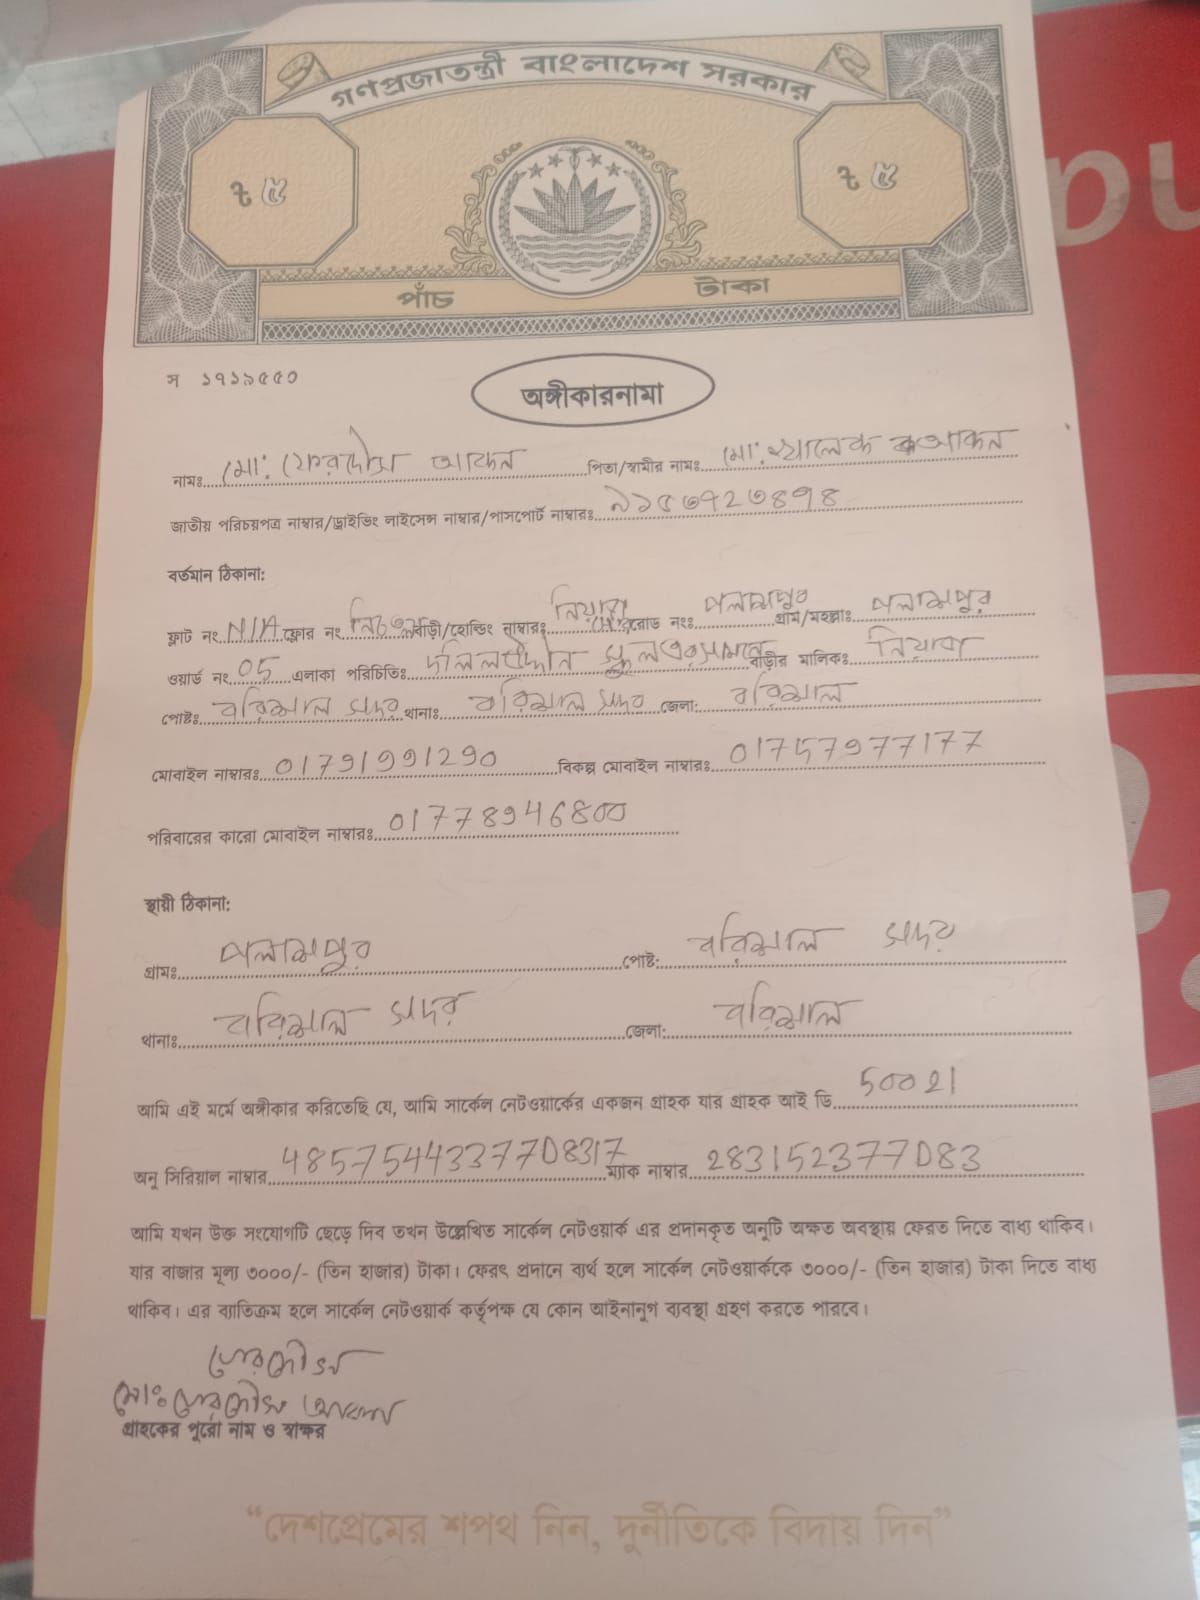 গণপ্রজাতন্ত্রী বাংলাদেশ সরকার
৳ ৫ ৳ ৫
পাঁচ টাকা
স ১৭১৯৫৫০
অঙ্গীকারনামা
নামঃ মো: ফেরদৌস আকন পিতা/স্বামীর নামঃ মো: খালেক আকন
জাতীয় পরিচয়পত্র নাম্বার/ড্রাইভিং লাইসেন্স নাম্বার/পাসপোর্ট নাম্বারঃ
বর্তমান ঠিকানা:
ফ্লাট নং N/A ফ্লোর নং নিচতলা বাড়ী/হোল্ডিং নাম্বারঃ রোড নংঃ পলাশপুর গ্রাম/মহল্লাঃ পলাশপুর
ওয়ার্ড নং 05 এলাকা পরিচিতিঃ স্কুল এর সামনে বাড়ীর মালিকঃ
পোষ্টঃ বরিশাল সদর থানাঃ বরিশাল সদর জেলা: বরিশাল
মোবাইল নাম্বারঃ 01791991290 বিকল্প মোবাইল নাম্বারঃ 01757977177
পরিবারের কারো মোবাইল নাম্বারঃ 01778946800
স্থায়ী ঠিকানা:
গ্রামঃ পলাশপুর পোষ্ট: বরিশাল সদর
থানাঃ বরিশাল সদর জেলা: বরিশাল
আমি এই মর্মে অঙ্গীকার করিতেছি যে, আমি সার্কেল নেটওয়ার্কের একজন গ্রাহক যার গ্রাহক আই ডি 50021
অনু সিরিয়াল নাম্বার 48575443377D8317 ম্যাক নাম্বার 283152377D83
আমি যখন উক্ত সংযোগটি ছেড়ে দিব তখন উল্লেখিত সার্কেল নেটওয়ার্ক এর প্রদানকৃত অনুটি অক্ষত অবস্থায় ফেরত দিতে বাধ্য থাকিব।
যার বাজার মূল্য ৩০০০/- (তিন হাজার) টাকা। ফেরৎ প্রদানে ব্যর্থ হলে সার্কেল নেটওয়ার্ককে ৩০০০/- (তিন হাজার) টাকা দিতে বাধ্য
থাকিব। এর ব্যতিক্রম হলে সার্কেল নেটওয়ার্ক কর্তৃপক্ষ যে কোন আইনানুগ ব্যবস্থা গ্রহণ করতে পারবে।
ফেরদৌস
মো: ফেরদৌস আকন
গ্রাহকের পুরো নাম ও স্বাক্ষর
“দেশপ্রেমের শপথ নিন, দুর্নীতিকে বিদায় দিন”